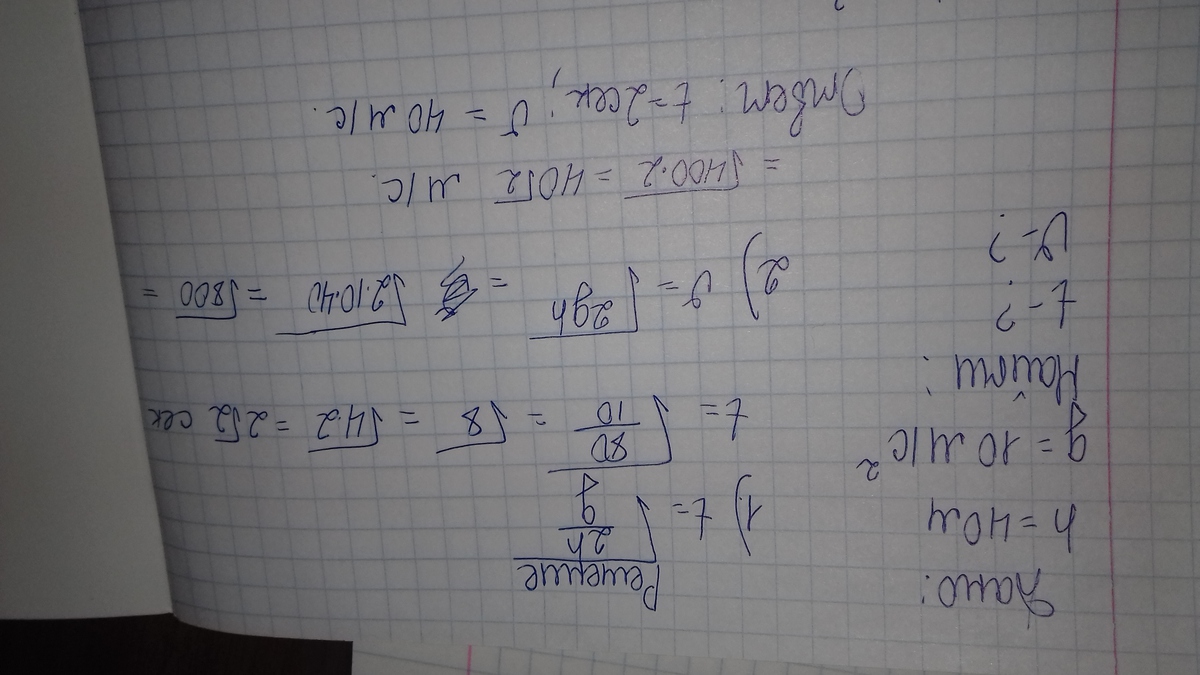 Дано:
h = 40м
g = 10 м/с²
Найти:
t - ?
v - ?
Решение
1.) t = √(2h/g)
t = √(80/10) = √8 = √4·2 = 2√2 сек
2) v = √2gh = √2·10·40 = √800 =
= √400·2 = 40√2 м/с.
Ответ: t = 2сек; v = 40 м/с.